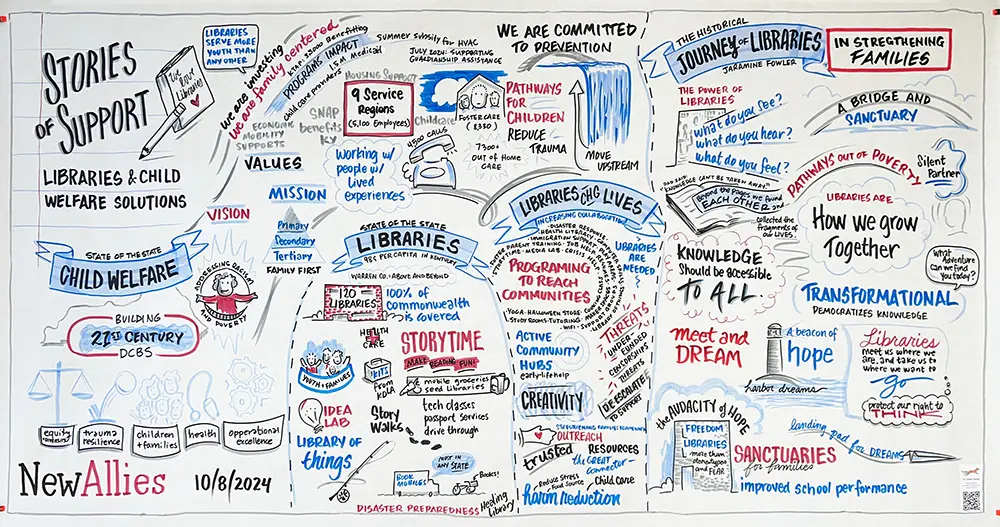 STORIES
OF SUPPORT
LIBRARIES & CHILD
WELFARE SOLUTIONS
LIBRARIES
SERVE MORE
YOUTH THAN
ANY OTHER
We are investing
We are family centered
PROGRAMS IMPACT
child care providers
1.5M Medicaid
Summer subsidy for HVAC
JULY 2024: SUPPORTING
GUARDIANSHIP ASSISTANCE
HOUSING SUPPORT
9 Service
Regions
(5,100 Employees)
SNAP
benefits
KY
ECONOMIC
MOBILITY
SUPPORTS
VALUES
MISSION
VISION
Childcare
4500 CALLS
Working w/
people w/
Lived
experiences
Primary
Secondary
Tertiary
FAMILY FIRST
WE ARE COMMITTED
TO PREVENTION
FOSTER CARE
PATHWAYS
FOR
CHILDREN
REDUCE
TRAUMA
7300+
OUT OF HOME
CARE
MOVE
UPSTREAM
STATE OF THE STATE
CHILD WELFARE
ADDRESSING RACISM
AND POVERTY
BUILDING
21ST CENTURY
DCBS
equity
trauma
resilience
children
+families
health
operational
excellence
NewAllies
10/8/2024
STATE OF THE STATE
LIBRARIES
98¢ PER CAPITA IN KENTUCKY
WARREN CO.: ABOVE AND BEYOND
120
LIBRARIES
100% of
commonwealth
is covered
HEALTH
CARE
KITS
From
KDLA
YOUTH + FAMILIES
STORYTIME
MAKE READING FUN!
mobile groceries
seed Libraries
tech classes
passport services
drive through
IDEA
LAB
Story
Walks
LIBRARY OF
things
BOOK
MOBILES
MOST IN
ANY STATE
Books!
DISASTER PREPAREDNESS
Healing
Library
LIBRARIES CHG LIVES
INCREASING COLLABORATION
DISASTER RESPONSE
HEALTH LITERACY
IMMIGRATION SUPPORT
PARENT TRAINING · JOB HELP
MEDIA LAB · CRISIS HELP
LIBRARIES
ARE
NEEDED
PROGRAMING
TO REACH
COMMUNITIES
YOGA · HALLOWEEN STORE
STUDY ROOMS · TUTORING
ACTIVE
COMMUNITY
HUBS
early-life help
THREATS
UNDER
FUNDED
CENSORSHIPS
THREATS
DE-ESCALATE
TO SUPPORT
CREATIVITY
OUTREACH
trusted
RESOURCES
the GREAT
Connector
Reduce Stress
Food Source
Child Care
harm reduction
THE HISTORICAL
JOURNEY OF LIBRARIES
JARAMINE FOWLER
IN STREGTHENING
FAMILIES
THE POWER OF
LIBRARIES
What do you see?
What do you hear?
What do you feel?
A BRIDGE AND
SANCTUARY
DAD SAID:
"KNOWLEDGE CAN'T BE TAKEN AWAY."
Beyond the pages we found
EACH OTHER and
collected the
fragments of
our LIVES.
PATHWAYS OUT OF POVERTY
Silent
Partner
LIBRARIES ARE
How we grow
Together
KNOWLEDGE
Should be accessible
TO ALL
What
Adventure
can we find
You today?
TRANSFORMATIONAL
DEMOCRATIZES KNOWLEDGE
meet and
DREAM
A beacon of
hope
harbor dreams
Libraries
meet us where we
are, and take us to
where we want to
go
protect our right to
THINK
the AUDACITY of HOPE
FREEDOM
LIBRARIES
more than
and FEAR
SANCTUARIES
for families
landing pad for DREAMS
improved school performance